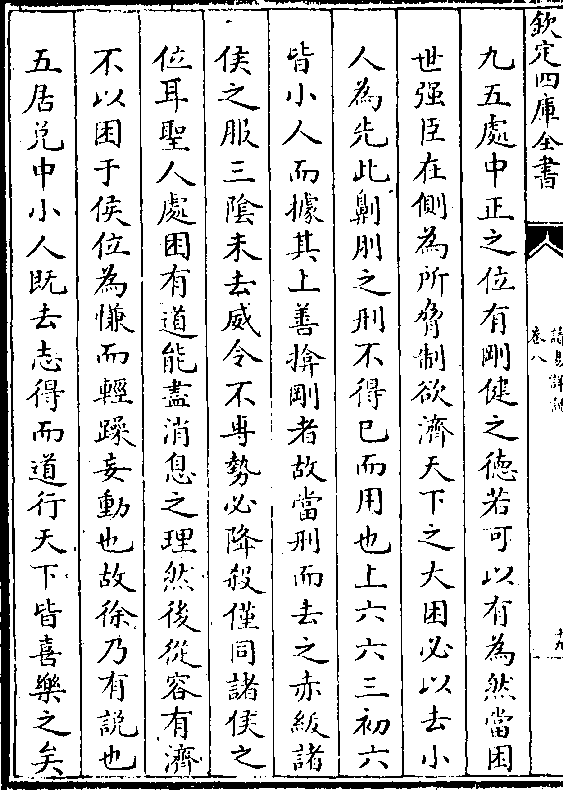 欽定四庫全書
卷八
讀易詳說
十九
九五處中正之位有剛健之徳若可以有為然當困
世强臣在側為所脅制欲濟天下之大困必以去小
人為先此劓刖之刑不得已而用也上六六三初六
皆小人而據其上善揜剛者故當刑而去之赤紱諸
侯之服三陰未去威令不専勢必降殺僅同諸侯之
位耳聖人處困有道能盡消息之理然後從容有濟
不以困于侯位為慊而輕躁妄動也故徐乃有説也
五居兌中小人既去志得而道行天下皆喜樂之矣